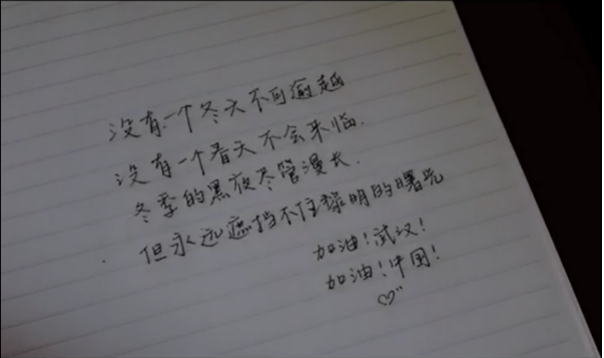 没有一个冬天不可逾越
没有一个春天不会来临.
冬季的黑夜尽管漫长.
但永远遮挡不住黎明的曙光
加油!武汉!
加油!中国!